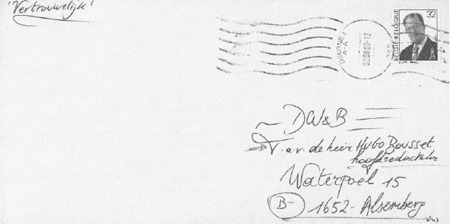 'Vertrouwelijk'
32
DW&B
T.a.v. de heer HUGO Bousset
hoofdredacteur
Waterpoel 15
B- 1652- Alsemberg